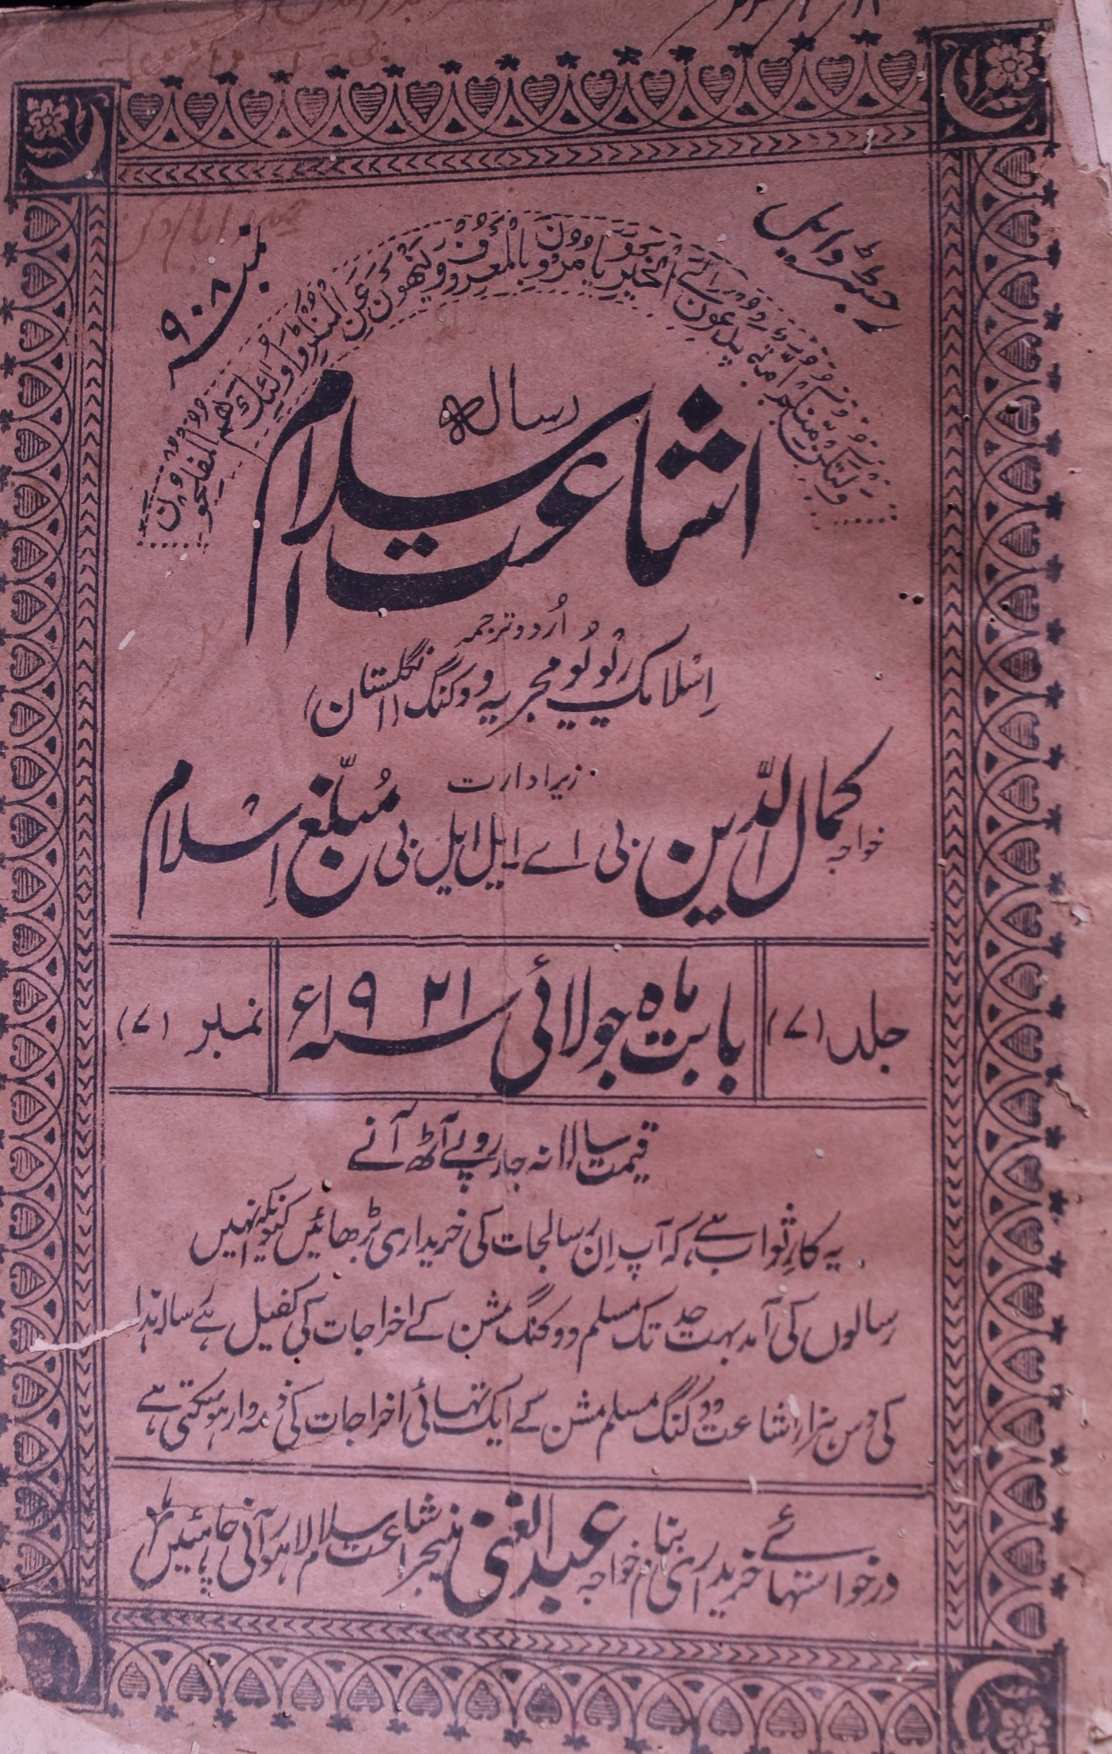 رجسٹرڈ ایل
نمبر ۹۰۸
وَلْتَكُن مِّنكُمْ أُمَّةٌ يَدْعُونَ إِلَى الْخَيْرِ وَيَأْمُرُونَ بِالْمَعْرُوفِ وَيَنْهَوْنَ عَنِ الْمُنكَرِ وَأُولَٰئِكَ هُمُ الْمُفْلِحُونَ
رسالہ
اشاعت اسلام
اُردو ترجمہ
اِسْلامک ریُویُو مجریہ ووکنگ (انگلستان)
زیر ادارت
خواجہ کمال الدّین بی اے ایل ایل بی مُبلّغِ اِسلام
جلد (۷)
بابت ماہ جولائی سنہ ۱۹۲۱ء
نمبر (۷)
قیمت سالانہ چار روپے آٹھ آنے
یہ کارِ ثواب ہے کہ آپ اِن رسالجات کی خریداری بڑھائیں کیونکہ انہیں
رسالوں کی آمد بہت حد تک مسلم ووکنگ مشن کے اخراجات کی کفیل ہے رسالہ ہذا
کی دس ہزار اشاعت ووکنگ مسلم مشن کے ایک تہائی اخراجات کی ذمہ وار ہوسکتی ہے
درخواستہائے خریداری بنام خواجہ عبد الغنی منیجر اشاعت اسلام لاہور آنی چاہئیں